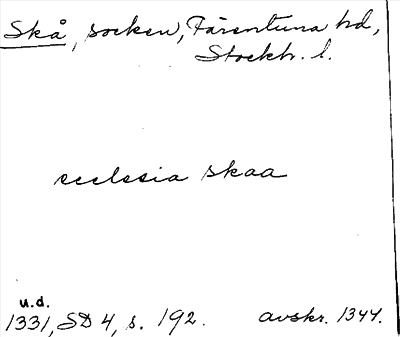 Skå, socken, Färentuna hd,
Stockh. l.
ecclesia skaa
u.d.
1331, SD 4, s. 192. avskr. 1344.